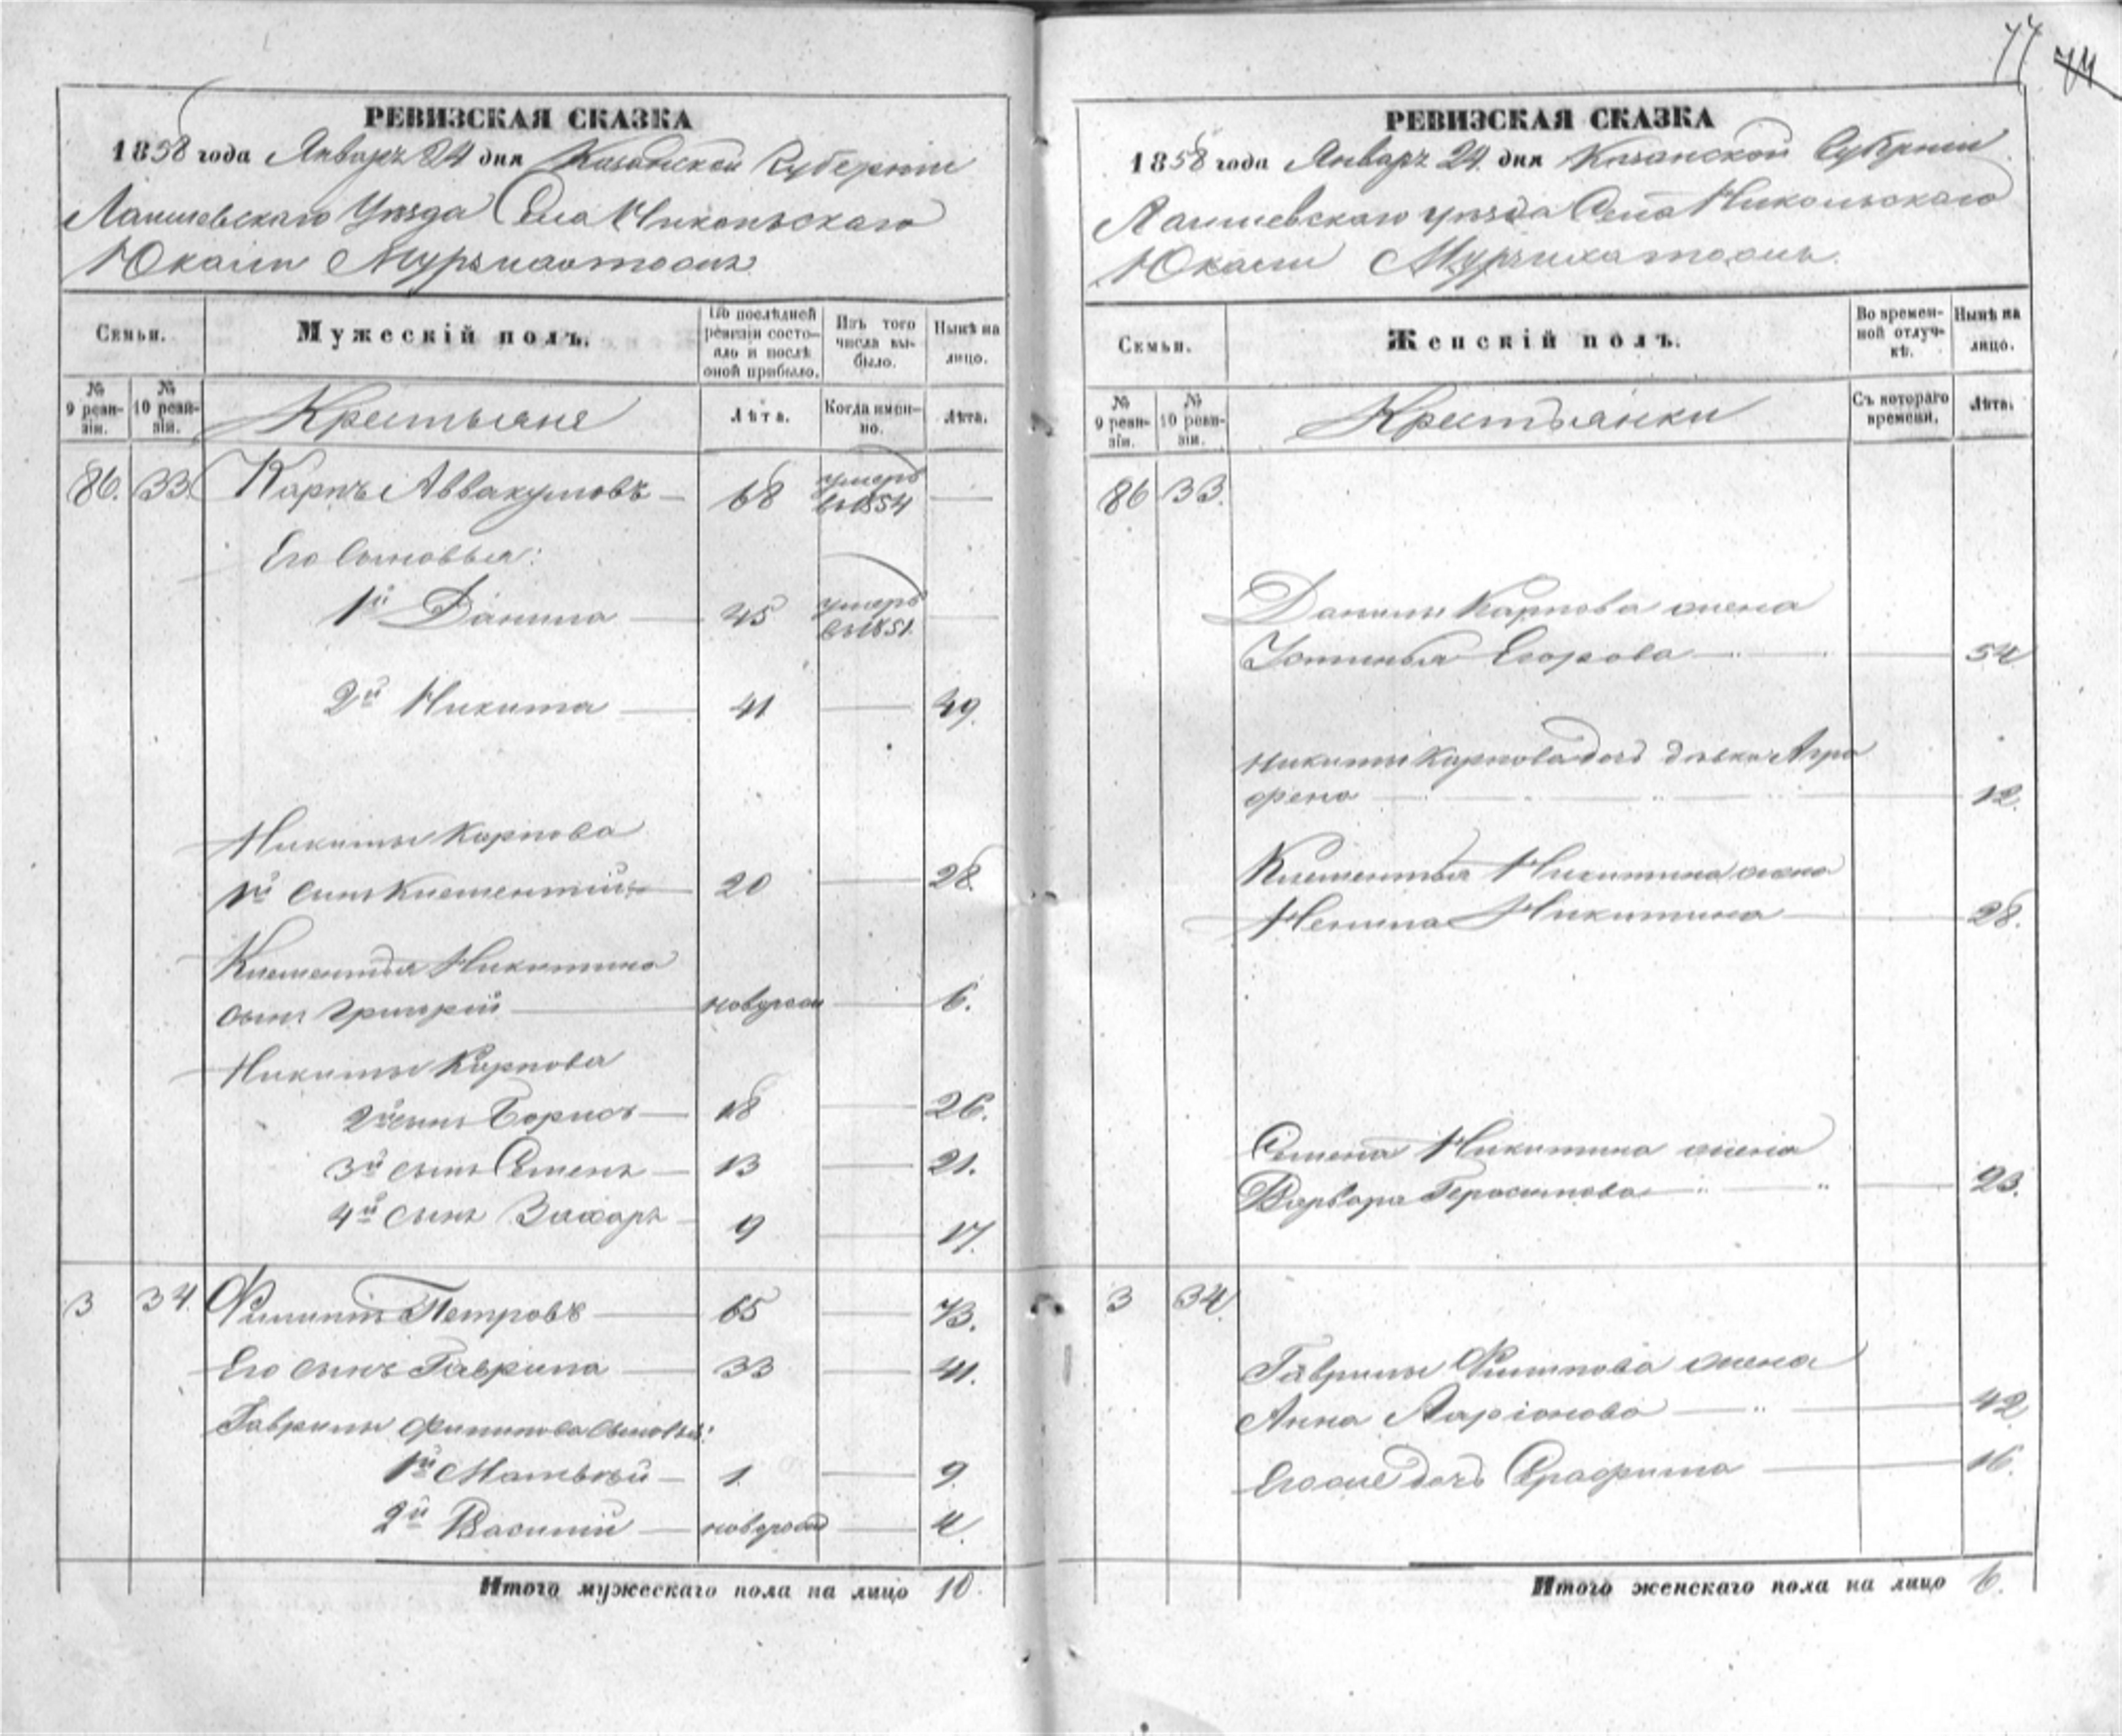 77 74
РЕВИЗСКАЯ СКАЗКА
1858 года Январь 24 дня Казанской Губернiи
Лаишевскаго Уѣзда Села Никольскаго
Юкали Мурзихатожъ
Семьи.
Мужескiй полъ.
По послѣдней ревизiи состо-
яло и послѣ
оной прибыло.
Изъ того
числа вы-
было.
Нынѣ на
лицо.
№
9 реви-
зiи.
№
10 реви-
зiи.
Крестьяне
Лѣта.
Когда имен-
но.
Лѣта.
86. 33. Карпъ Аввакумовъ — 68 умеръ въ 1854 —
Его Сыновья:
1й Данила — 45 умеръ въ 1851. —
2й Никита — 41 — 49.
Никиты Карпова
1й сынъ Клементiй — 20 — 28.
Клементья Никитина
сынъ Григорiй — новорож — 6.
Никиты Карпова
2й сынъ Борисъ — 18 — 26.
3й сынъ Семенъ — 13 — 21.
4й сынъ Захаръ — 9 — 17.
3 34. Филипъ Петровъ — 65 — 73.
Его сынъ Гаврила — 33 — 41.
Гаврилы Филипова Сыновья:
1й Матвѣй — 1. — 9.
2й Василiй — новорож — 4.
Итого мужескаго пола на лицо 10.
РЕВИЗСКАЯ СКАЗКА
1858 года Январь 24. дня Казанской Губернiи
Лаишевскаго уѣзда Села Никольскаго
Юкали Мурзихатожъ.
Семьи.
Женскiй полъ.
Во времен-
ной отлуч-
кѣ.
Нынѣ на
лицо.
№
9 реви-
зiи.
№
10 реви-
зiи.
Крестьянки
Съ котораго
времени.
Лѣта.
86 33.
Данилы Карпова жена
Устинья Егорова — 54
Никиты Карпова дочь дѣвка Агра
фена — 12.
Клементья Никитина жена
Ненила Никитина — 28.
Семена Никитина жена
Варвара Герасимова — 23.
3 34.
Гаврилы Филипова жена
Анна Ларiонова — 42
Его же дочь Серафима — 16.
Итого женскаго пола на лицо 6.